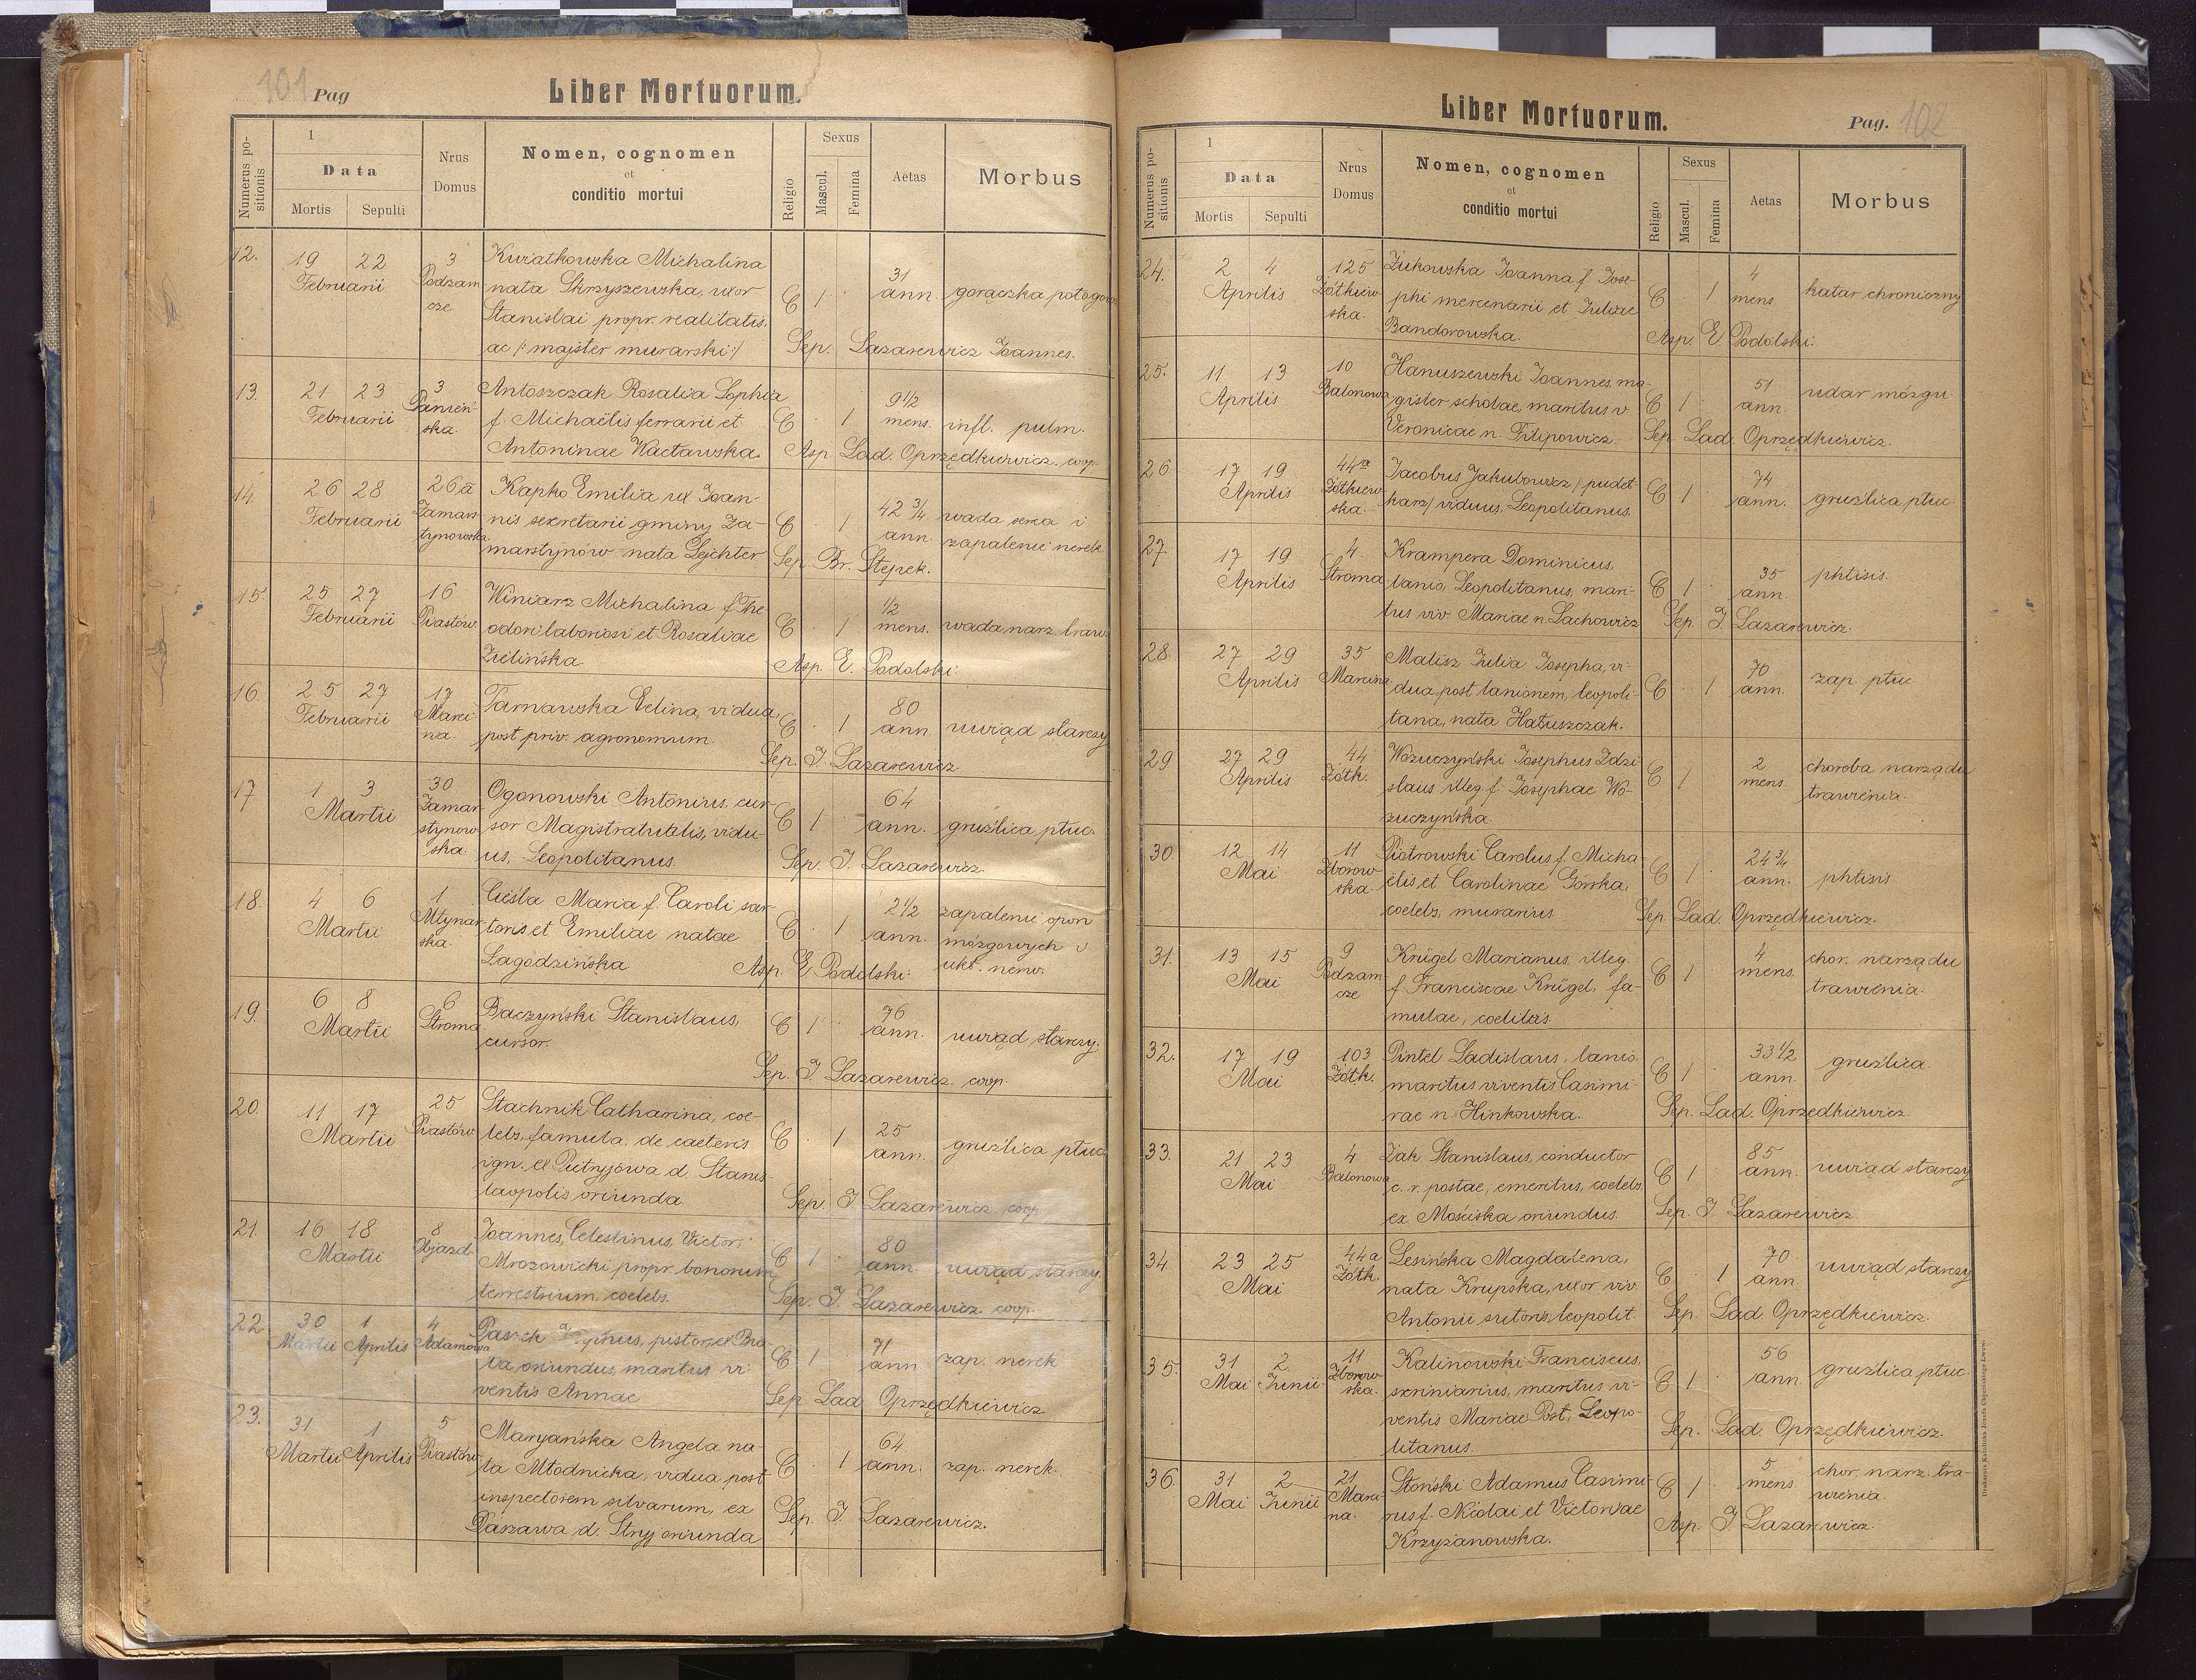 101 Pag
Liber Mortuorum.
Numerus positionis
1
Data
Mortis Sepulti
Nrus Domus
Nomen, cognomen
et
conditio mortui
Religio
Sexus
Mascul. Femina
Aetas
Morbus
12. 19 22 3 Kwiatkowska Michalina
Februarii Podzam nata Skrzyszewska, uxor C 1 31 ann. gorączka połogowa
cze Stanislai propr. realitatis,
ac /: majster murarski :/ Sep. Lazarewicz Joannes.
13. 21 23 3 Antoszczak Rosalia Sophia
Februarii Panień f. Michaëlis ferrarii et C 1 9 1/2 mens. infl. pulm.
ska. Antoninae Wacławska. Asp. Lad. Oprzędkiewicz. coop.
14. 26 28 26a Kapko Emilia ux Joan-
Februarii Zamar nis sekretarii gminy Za- C 1 42 3/4 ann. wada serca i
stynowska marstynów nata Lejchter zapalenie nerek
Sep. Br. Stepek.
15. 25 27 16 Winiarz Michalina f. The
Februarii Piastów odori laboriosi et Rosaliae C 1 1/2 mens. wada narz. traw.
Zielińska. Asp. E. Podolski.
16. 25 27 17 Tarnawska Celina, vidua
Februarii Marci post priv. agronomum. C 1 80 ann. uwiąd starczy
na. Sep. J. Lazarewicz.
17 1 3 30 Ogonowski Antonius, cur
Martii Zamar sor Magistratualis, vidu- C 1 64 ann. gruźlica płuc.
stynow us, Leopolitanus.
ska Sep. J. Lazarewicz.
18. 4 6 1 Cieśla Maria f. Caroli sar
Martii Młynar toris et Emiliae natae C 1 2 1/2 ann. zapalenie opon
ska Łagodzińska. mózgowych i
Asp. E. Podolski. ukł. nerw.
19. 6 8 6 Baczyński Stanislaus,
Martii Stroma cursor. C 1 76 ann. uwiąd starczy.
Sep. J Lazarewicz. coop.
20. 11 17 25 Stachnik Catharina, coe-
Martii Piastów lebs, famula, de caeteris C 1 25 ann. gruźlica płuc
ign. d. Stanis-
laopolis oriunda. Sep. J. Lazarewicz coop
21. 16 18 8 Joannes, Celestinus, Victor,
Martii Objazd Mrozowicki propr. bonorum C 1 80 ann. uwiąd starczy.
terrestrium, coelebs. Sep. J. Lazarewicz. coop.
22. 30 1 4
Martii Aprilis Adamowa pistor, ex Bia-
ła oriundus, maritus vi- C 1 71 ann zap. nerek
ventis Annae Sep. Lad Oprzędkiewicz.
23. 31 1 5 Maryańska Angela na-
Martii Aprilis Piastów ta Młodnicka, vidua post C 1 64 ann. zap. nerek.
inspectorem silvarum, ex
d. Stryj oriunda Sep. J. Lazarewicz.
Liber Mortuorum.
Pag. 102
Numerus positionis
1
Data
Mortis Sepulti
Nrus Domus
Nomen, cognomen
et
conditio mortui
Religio
Sexus
Mascul. Femina
Aetas
Morbus
24. 2 4 125 Żukowska Joanna f. Jose-
Aprilis Żółkiew phi mercenarii et Juliae C 1 4 mens. katar chroniczny
ska. Bandorowska. Asp. E. Podolski.
25. 11 13 10 Hanuszewski Joannes, ma-
Aprilis Balonowa gister scholae, maritus v. C 1 51 ann. udar mózgu.
Veronicae n. Filipowicz. Sep. Lad. Oprzędkiewicz.
26 17 19 44a Jacobus Jakubowicz / pudeł
Aprilis Żółkiew karz/ viduus, Leopolitanus. C 1 74 ann. gruźlica płuc.
ska.
27. 17 19 4. Krampera Dominicus,
Aprilis Stroma lanio, Leopolitanus, mari- C 1 35 ann. phtisis.
tus viv. Mariae n. Lachowicz Sep. J. Lazarewicz.
28 27 29 35 Malisz Julia Josepha, vi-
Aprilis Marcina dua post lanionem, leopoli- C 1 70 ann. zap. płuc
tana, nata Hałuszczak.
29 27 29 44 Wozuczyński Josephus Zdzi
Aprilis Żółk. slaus illeg. f. Josephae Wo- C 1 2 mens. choroba narządu
zuczyńska. trawienia.
30. 12 14 11 Piotrowski Carolus f. Micha
Mai Zborow ëlis et Carolinae Górska, C 1 24 3/4 ann. phtisis
ska. coelebs, murarius. Sep. Lad. Oprzędkiewicz.
31. 13 15 9 Krügel Marianus, illeg.
Mai Podzam f. Franciscae Krügel, fa- C 1 4 mens. chor. narządu
cze mulae, coelibis. trawienia.
32. 17 19 103 Pintel Ladislaus, lanio,
Mai Żółk. maritus viventis Casimi- C 1 33 1/2 ann. gruźlica.
rae n. Hinkowska. Sep. Lad. Oprzędkiewicz.
33. 21 23 4 Żak Stanislaus, conductor
Mai Balonowa c. r. postae, emeritus, coelebs C 1 85 ann. uwiąd starczy
ex Mościska oriundus. Sep. J. Lazarewicz
34 23 25 44a Lesińska Magdalena,
Mai Żółk. nata Krupska, uxor viv. C 1 70 ann. uwiąd starczy
Antonii sutoris, leopolit. Sep. Lad. Oprzędkiewicz.
35. 31 2 11 Kalinowski Franciscus,
Mai Junii Zborow scriniarius, maritus vi- C 1 56 ann gruźlica płuc
ska. ventis Mariae Post, Leopo-
litanus. Sep. Lad. Oprzędkiewicz.
36. 31 2 21 Stoński Adamus Casimi-
Mai Junii Marci- rus f. Nicolai et Victoriae C 1 5 mens chor. narz. tra-
na. Krzyżanowska. wienia.
Asp. J. Lazarewicz.